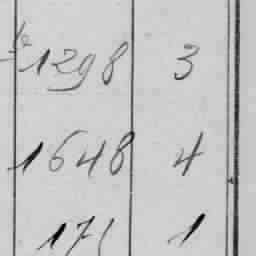 1298 3
1648 4
171 1